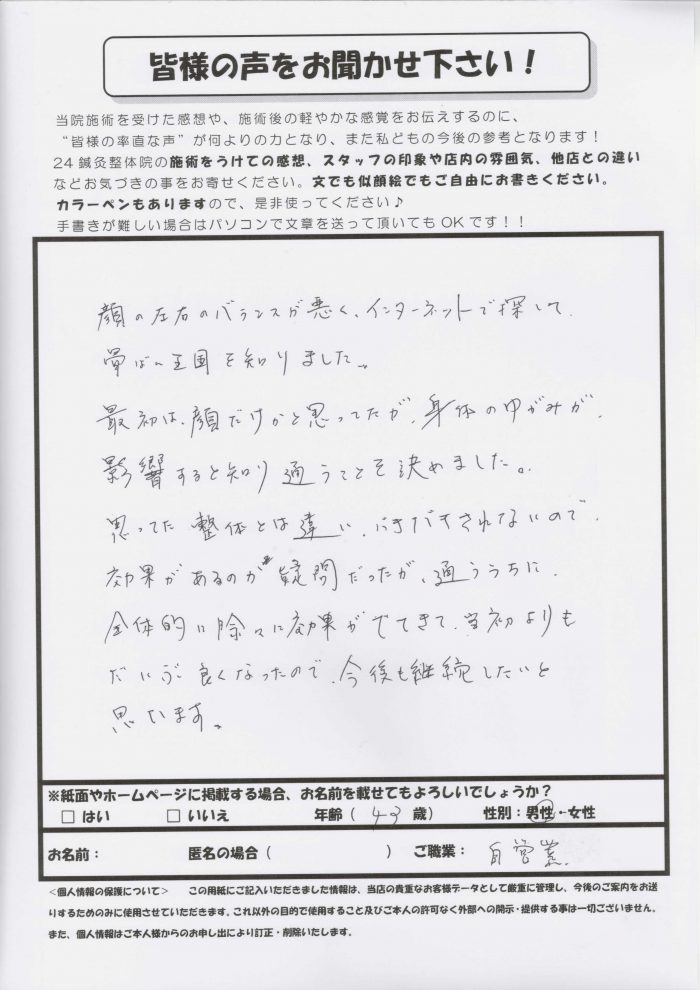 皆様の声をお聞かせ下さい！
当院施術を受けた感想や、施術後の軽やかな感覚をお伝えするのに、
“皆様の率直な声”が何よりの力となり、また私どもの今後の参考となります！
24鍼灸整体院の施術をうけての感想、スタッフの印象や店内の雰囲気、他店との違い
などお気づきの事をお寄せください。文でも似顔絵でもご自由にお書きください。
カラーペンもありますので、是非使ってください♪
手書きが難しい場合はパソコンで文章を送って頂いてもOKです！！
顔の左右のバランスが悪く、インターネットで探して、
骨ばん王国を知りました。
最初は、顔だけかと思ってたが、身体のゆがみが、
影響すると知り通うことを決めました。
思ってた整体とは違い、バキバキされないので、
効果があるのか疑問だったが、通ううちに、
全体的に除々に効果がでてきて、当初よりも
だいぶ良くなったので、今後も継続したいと
思います。
※紙面やホームページに掲載する場合、お名前を載せてもよろしいでしょうか？
□ はい □ いいえ 年齢（ 43 歳） 性別：男性・女性
お名前： 匿名の場合（ ） ご職業： 自営業
＜個人情報の保護について＞ この用紙にご記入いただきました情報は、当店の貴重なお客様データとして厳重に管理し、今後のご案内をお送
りするためのみに使用させていただきます。これ以外の目的で使用すること及びご本人の許可なく外部への開示・提供する事は一切ございません。
また、個人情報はご本人様からのお申し出により訂正・削除いたします。